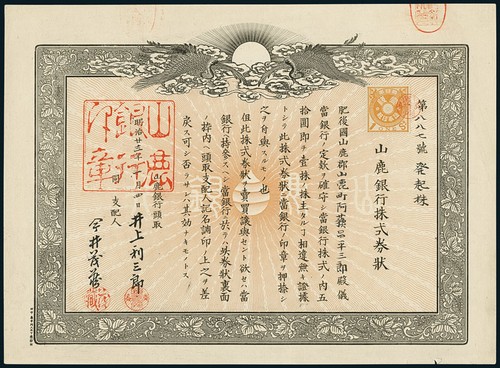 第八八七號 発起株
山鹿銀行株式券狀
肥後國山鹿郡山鹿町阿蘓品平三郎殿儀
當銀行ノ定款ヲ確守シ當銀行株式ノ内五
拾圓即チ壹株ノ株主タル丁相違無キ證據
トシテ此株式券狀ニ當銀行ノ印章ヲ押捺シ
之ヲ付與スルモノ也
但此株式券狀ヲ賣買讓與セント欲セハ當
銀行ヘ持参スヘシ當銀行ニ於テハ此券狀裏面
ノ枠内ヘ頭取支配人記名調印ノ上之ヲ差
戻スヘシ否ラサレハ其効ナキモノトス
明治廿三年 月 四日
山鹿銀行頭取 井上利三郎
同 支配人 今井茂
山鹿銀行印章